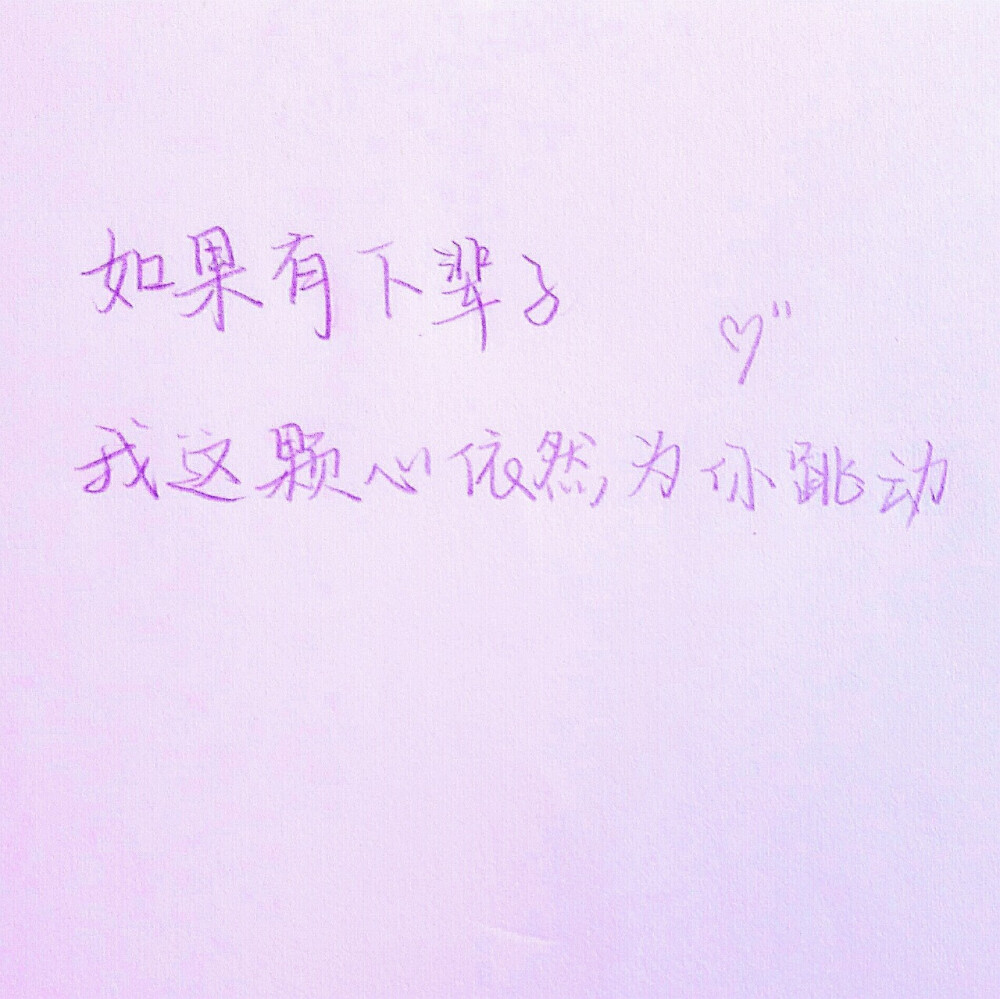 如果有下辈子
我这颗心依然为你跳动